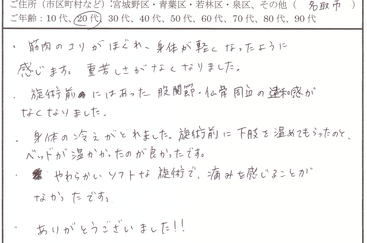 ご住所（市区町村など）：宮城野区・青葉区・若林区・泉区、その他（ 名取市 ）
ご年齢：10代、20代、30代、40代、50代、60代、70代、80代、90代
・筋肉のコリがほぐれ、身体が軽くなったように
感じます。重苦しさがなくなりました。
・施術前にはあった股関節・仙骨周辺の違和感が
なくなりました。
・身体の冷えがとれました。施術前に下肢を温めてもらったのと、
ベッドが温かかったのが良かったです。
・やわらかいソフトな施術で、痛みを感じることが
なかったです。
・ありがとうございました!!